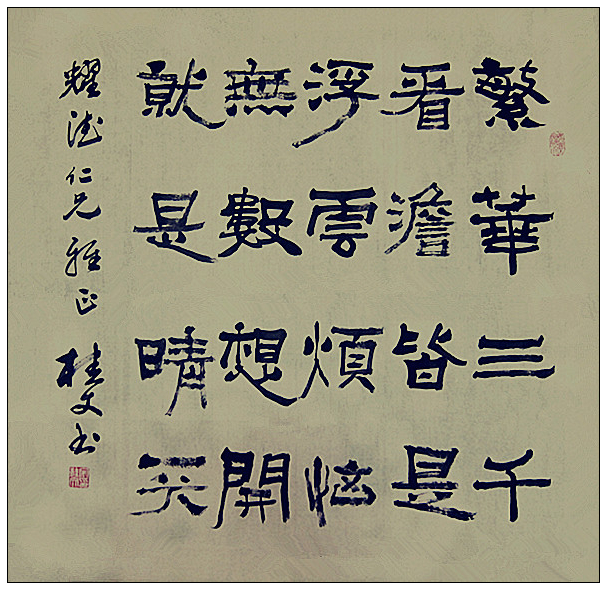 繁華三千
看澹皆是
浮雲煩惱
無數想開
就是晴天
耀德仁兄雅正桂文书